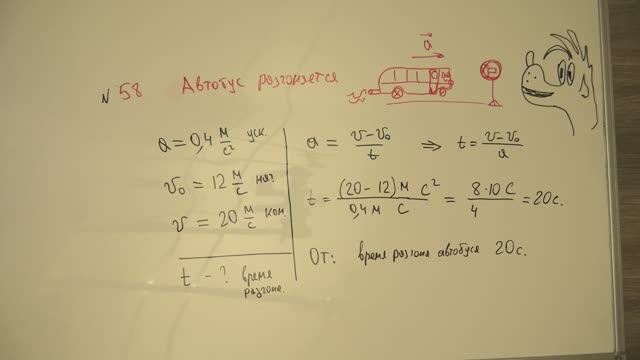 N 58 Автобус разгоняется
a⃗
a = 0,4 м/с² уск.
v₀ = 12 м/с нач
v = 20 м/с кон.
t - ? время
разгона.
a = (v-v₀)/t ⇒ t = (v-v₀)/a
t = (20-12) м с²/0,4 м с = 8·10 с/4 = 20 с.
От: время разгона автобуса 20 с.